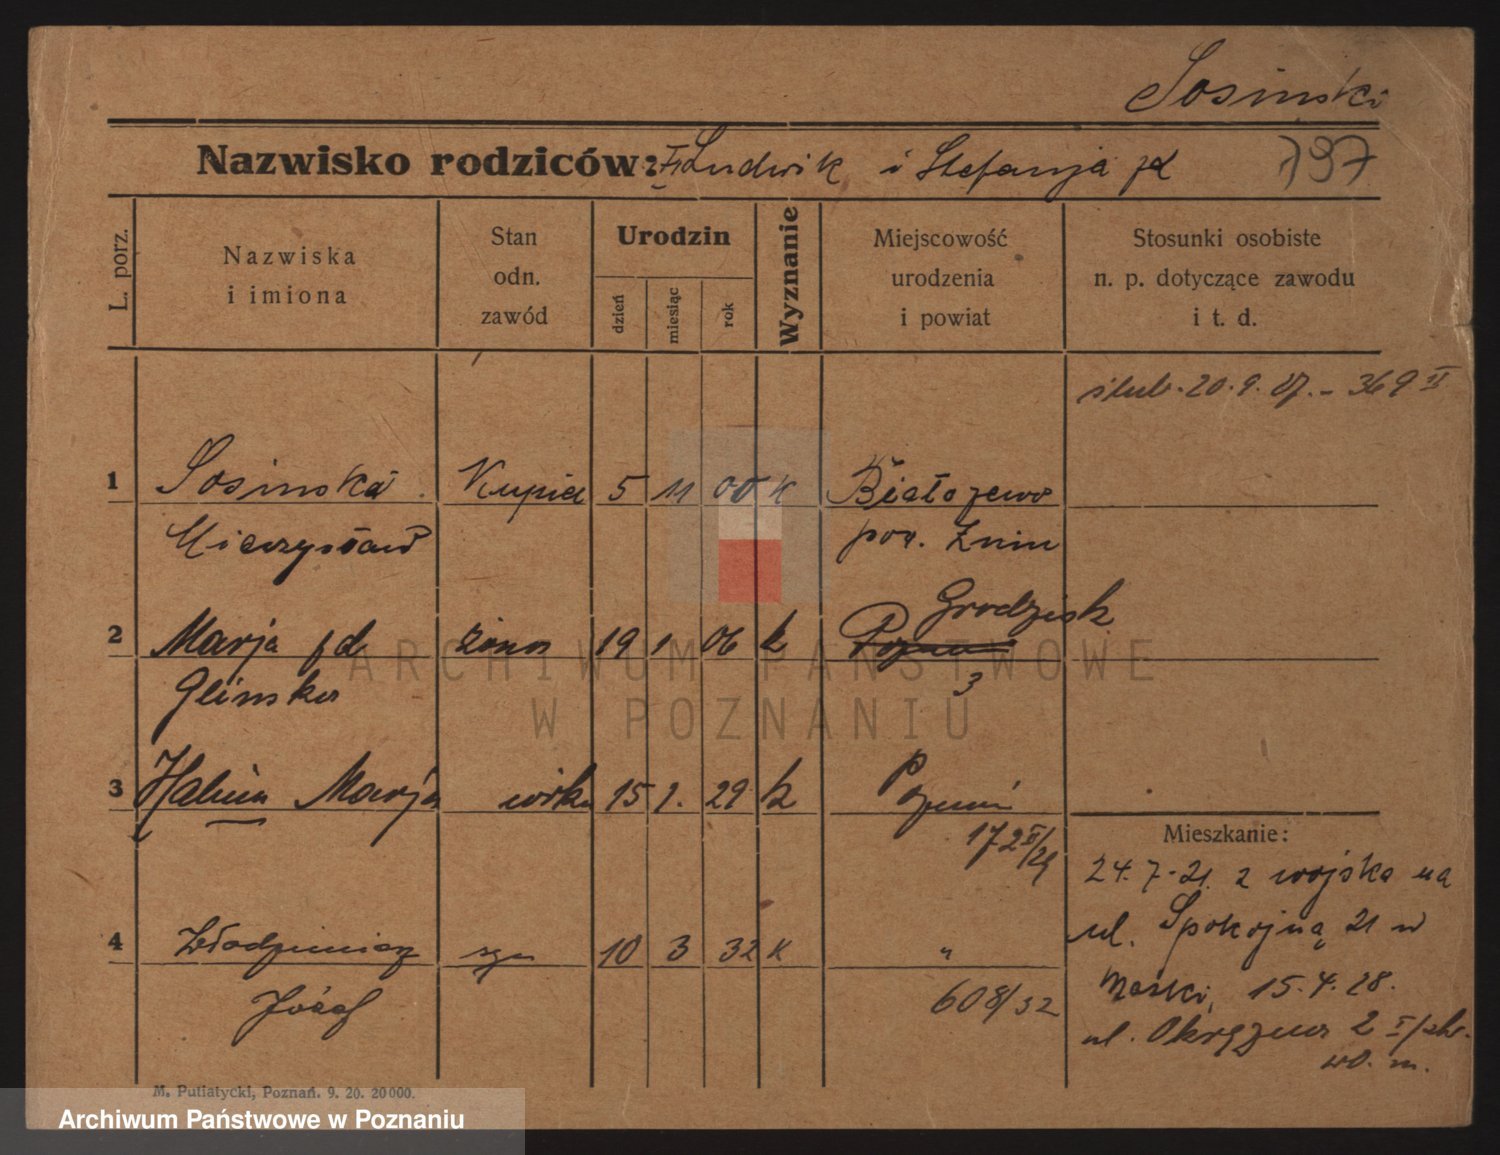 Sosinski
Nazwisko rodziców: Ludwik i Stefanja fd 797
L. porz.
Nazwiska
i imiona
Stan
odn.
zawód
Urodzin
dzień
miesiąc
rok
Wyznanie
Miejscowość
urodzenia
i powiat
Stosunki osobiste
n. p. dotyczące zawodu
i t. d.
ślub. 20. 9. 27. - 369 II
1 Sosinski Kupiec 5 11 00 K Białożewo
Mieczysław pow. Żnin
Grodzisk
2 Marja fd żona 19 1 06 k
Glinska 3
3 Halina Marja córka 15 2. 29 k Poznań
172 II/29
Mieszkanie:
24. 7. 21. z wojska na
ul. Spokojną 21 w
Maski, 15. 4. 28.
ul. Okrężna 2 I
wo. m.
4 Włodzimierz syn 10 3 32 K "
Józef 608/32
M. Putiatycki, Poznań. 9. 20. 20000.
ARCHIWUM PAŃSTWOWE
W POZNANIU
Archiwum Państwowe w Poznaniu